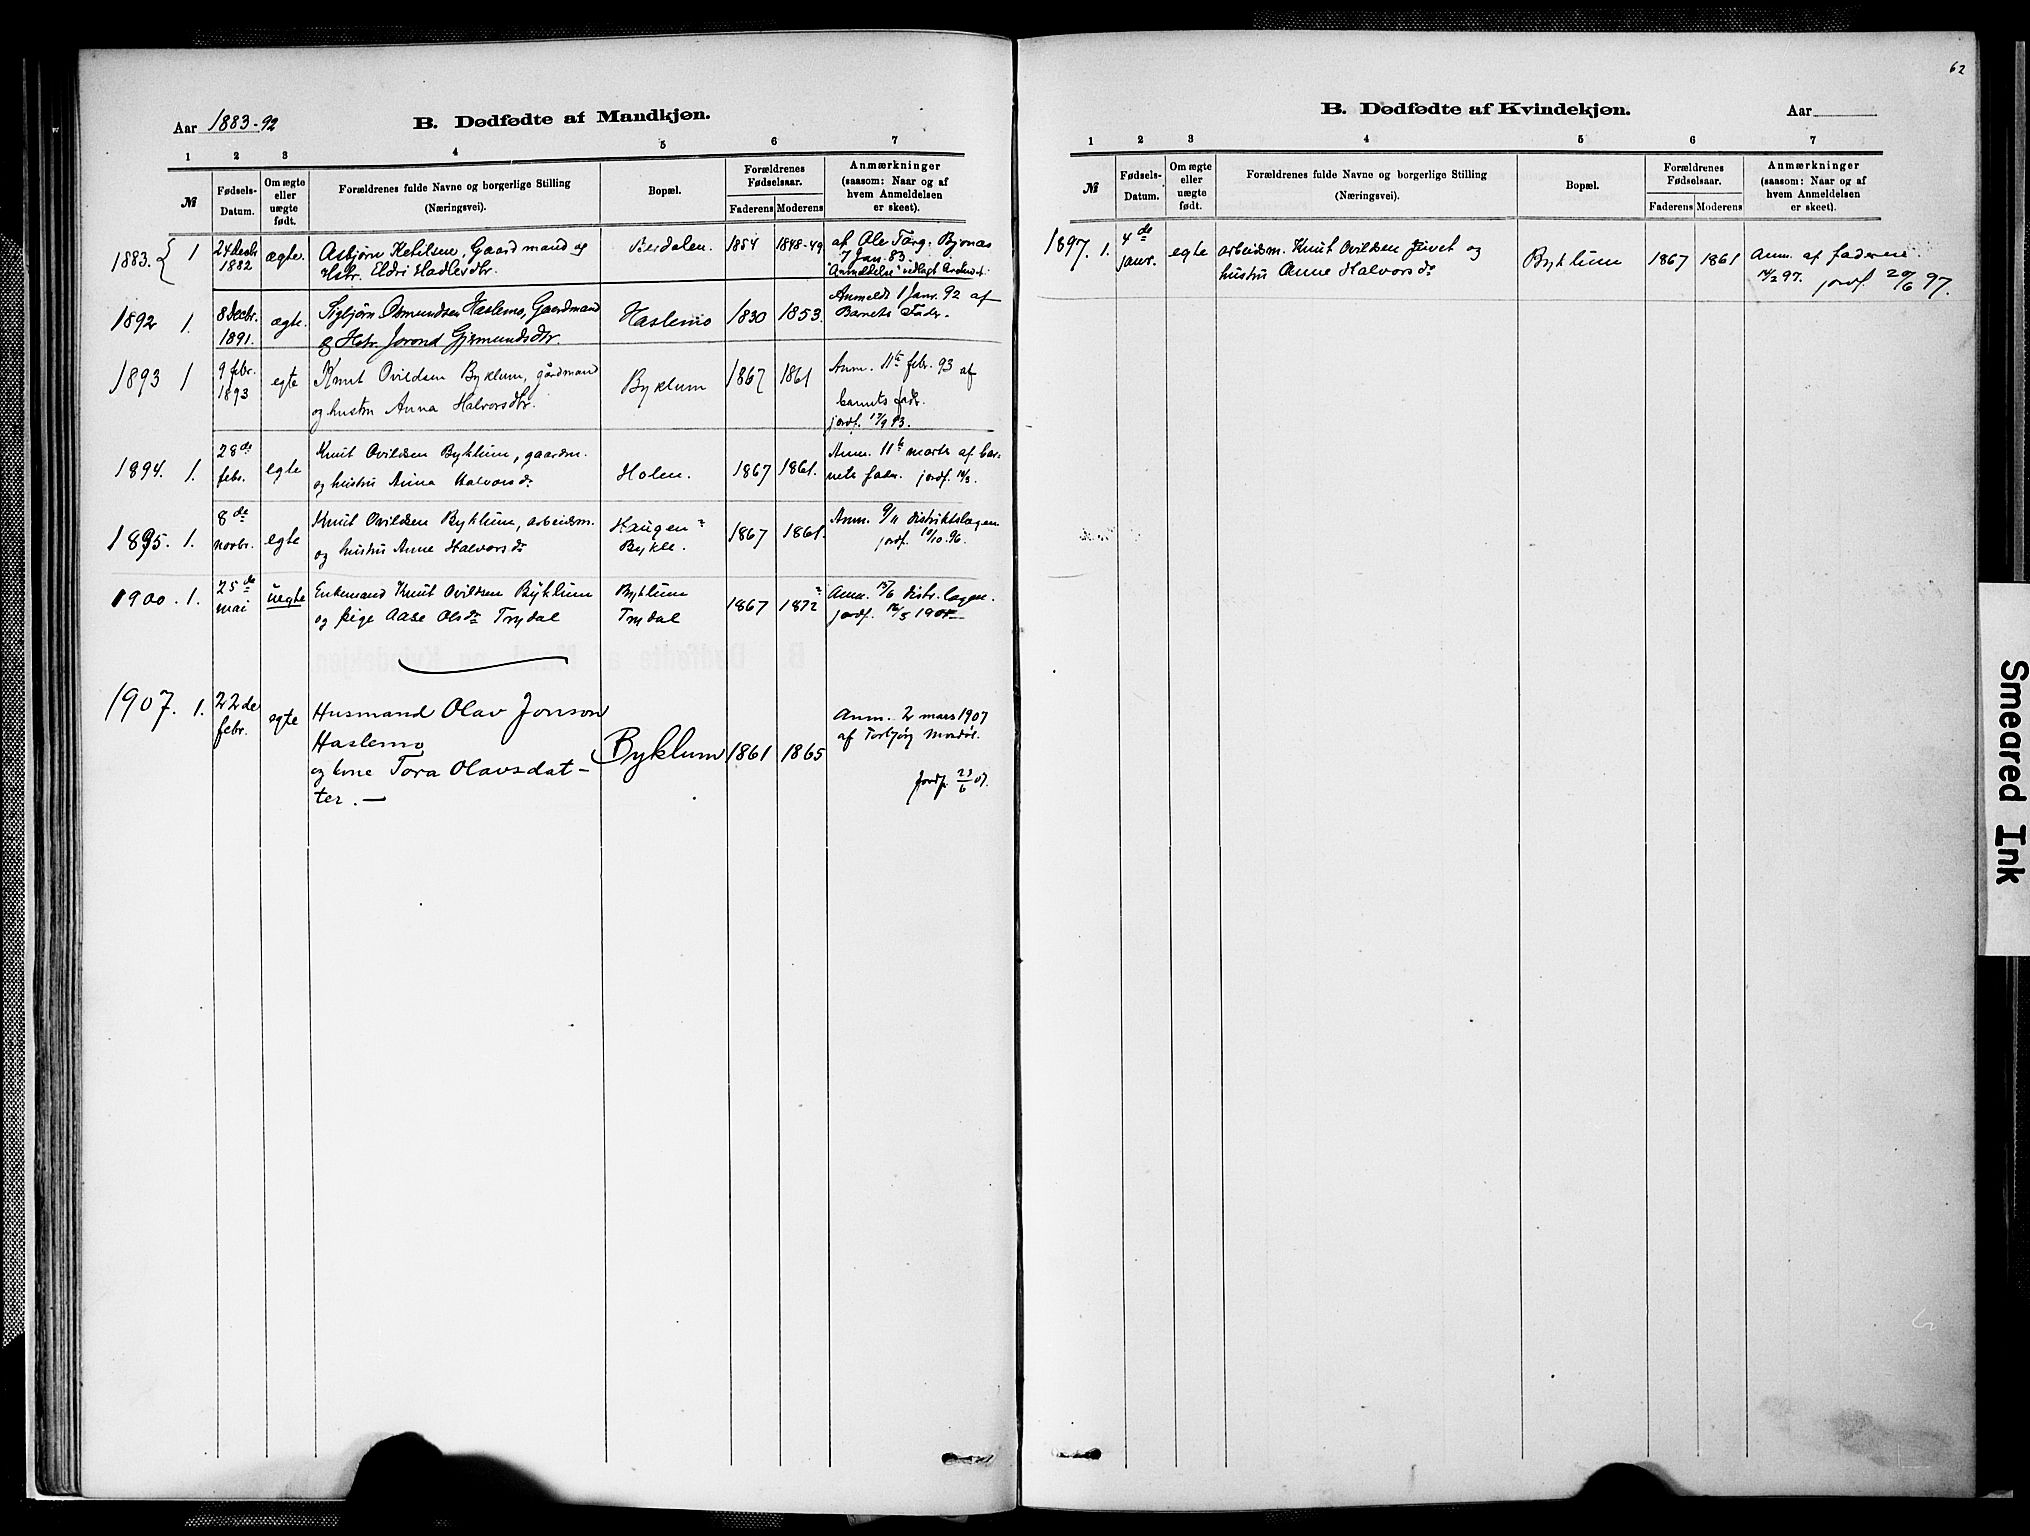 62
Aar 1883-92
B. Dødfødte af Mandkjøn.
1 2 3 4 5 6 7
№
Fødsels-
Datum.
Om ægte
eller
uægte
født.
Forældrenes fulde Navne og borgerlige Stilling
(Næringsvei).
Bopæl.
Forældrenes
Fødselsaar.
Faderens Moderens
Anmærkninger
(saasom: Naar og af
hvem Anmeldelsen
er skeet).
1883. 1 24 Decbr 1882 ægte. Asbjørn Ketilsen, Gaardmand og
Hstr. Eldri
1854 1848-49
af Ole Targ. Bjønas
7 Jan. 83.
1892 1. 8 Decbr. 1891. ægte. Sigbjørn Osmundsen Haslemo, Gaardmand
& Hstr. Jorond Gjermundsdtr.
Haslemo 1830 1853.
Anmeldt 1 Janr. 92 af
Barnets Fader.
1893 1 9 febr. 1893 egte Knut Ovildsen Byklum, gårdmand
og hustru Anna Halvorsdtr.
Byklum 1867 1861
Anm. 11te febr. 93 af
barnets fadr.
jordf. 17/9 93.
1894. 1. 28de febr. egte Knut Ovildsen Byklum, gaardm.
og hustru Anna Halvorsdr
Holen. 1867 1861.
Anm. 11te marts af bar-
nets fader. jordf. 14/3.
1895. 1. 8de novbr. egte Knut Ovildsen Byklum, arbeidsm.
og hustru Anne Halvorsdr
Haugen
Bykle.
1867 1861.
Anm. 9/11 distriktslægen.
jordf. 10/10.96.
1900. 1. 25de mai uegte Enkemand Knut Ovildsen Byklum
og pige Aase Olsdr Trydal
Byklum
Trydal
1867 1872
Anm. 15/6 distr.lægen.
jordf.
1907. 1. 22de febr. egte Husmand Olav Jonson
Haslemo
og kone Tora Olavsdat-
ter. —
Byklum 1861 1865
Anm. 2 mars 1907
af Torbjørg
Jordf. 23/6 07.
B. Dødfødte af Kvindekjøn.
Aar
1 2 3 4 5 6 7
№
Fødsels-
Datum.
Om ægte
eller
uægte
født.
Forældrenes fulde Navne og borgerlige Stilling
(Næringsvei).
Bopæl.
Forældrenes
Fødselsaar.
Faderens Moderens
Anmærkninger
(saasom: Naar og af
hvem Anmeldelsen
er skeet).
1897. 1. 4de janr. egte arbeidsm. Knut Ovildsen og
hustru Anne Halvorsdr
Byklum 1867 1861
Anm. af faderen
14/2 97. jordf. 20/6 97.
Smeared Ink